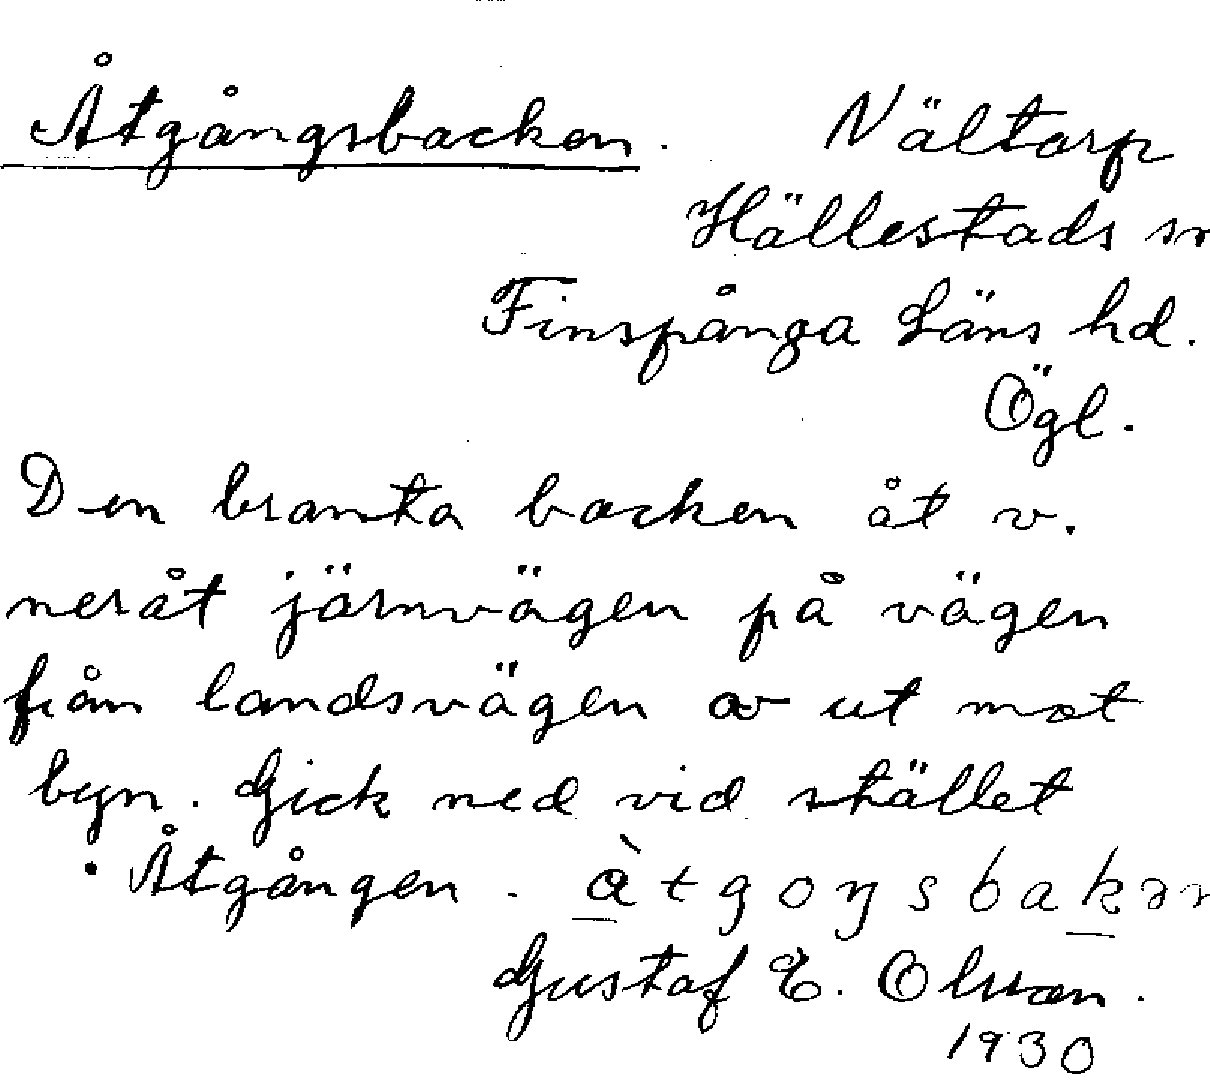 Åtgångsbacken. Nältorp
Hällestads sn
Finspånga Läns hd.
Ögl.
Den branta backen åt v.
neråt järnvägen på vägen
från landsvägen av ut mot
byn. Gick ned vid stället
Åtgången.
Gustaf E. Olsson.
1930